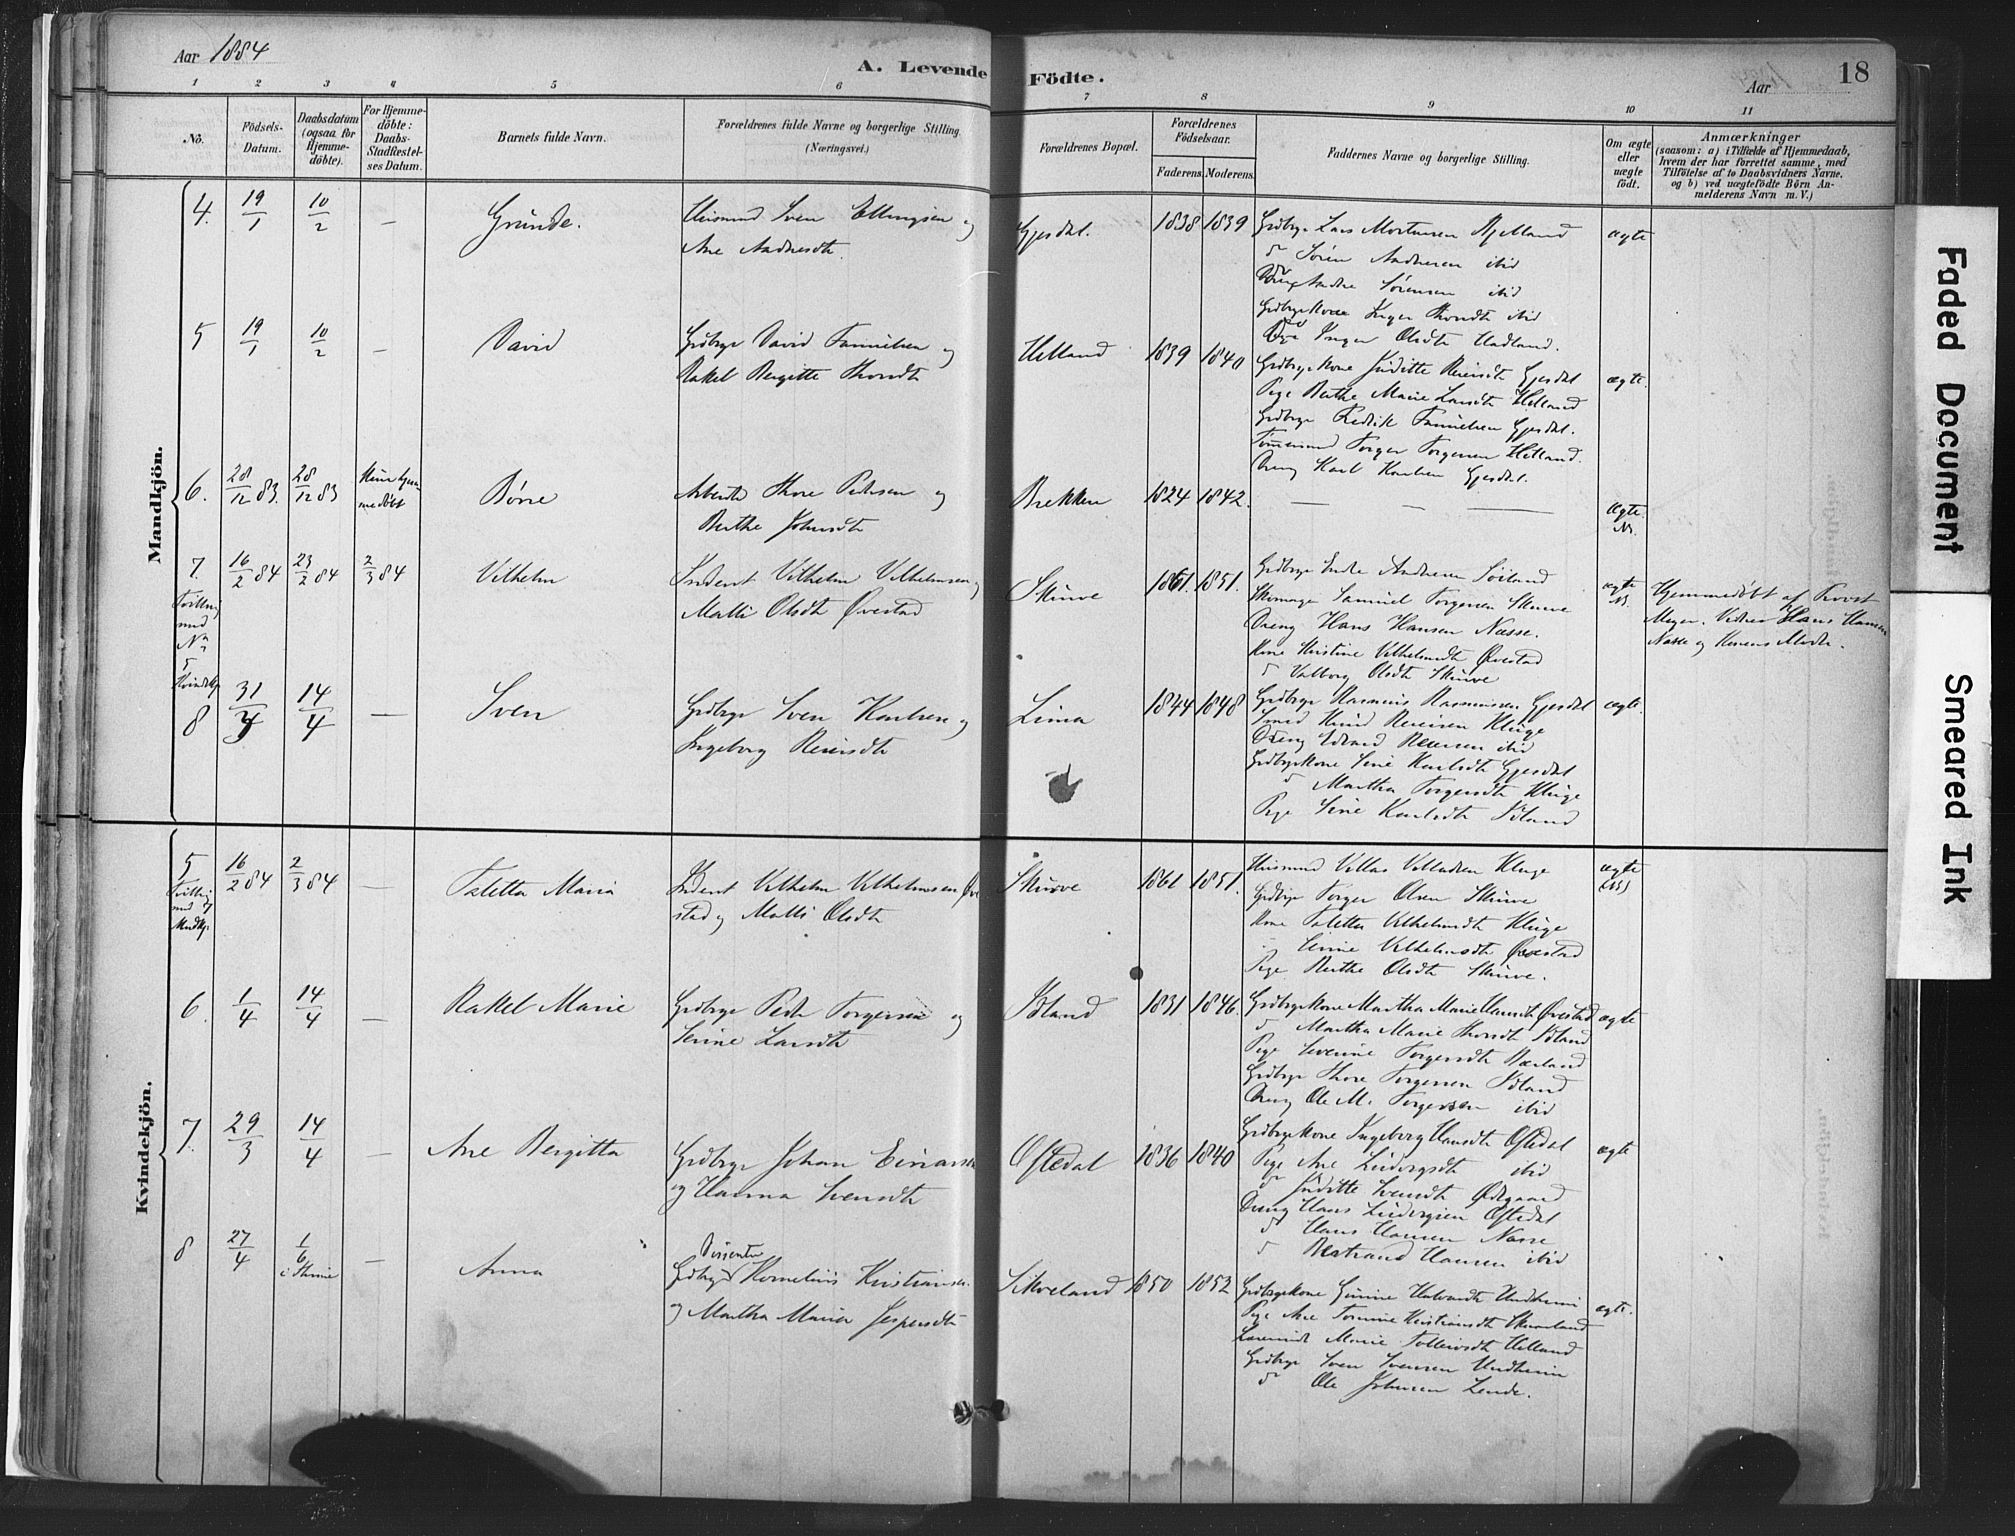 Aar 1884
A. Levende Födte.
Aar
18
1 2 3 4 5 6 7 8 9 10 11
No.
Födsels-Datum.
Daabsdatum (ogsaa for Hjemmedöbte).
For Hjemmedöbte: Daabs-Stadfæstelses Datum.
Barnets fulde Navn.
Forældrenes fulde Navne og borgerlige Stilling.
(Næringsvei.)
Forældrenes Bopæl.
Forældrenes Födselsaar.
Faderens Moderens
Faddernes Navne og borgerlige Stilling.
Om ægte eller uægte födt.
Anmærkninger
(saasom: a) i Tilfælde af Hjemmedaab, hvem der har forrettet samme, med Tilföielse af to Daabsvidners Navne. og b) ved uægtefödte Börn Anmelderens Navn m. V.)
Mandkjön.
4. 19/1 10/2 — Grunde.
Husmand Sven Ellingsen og
Ane Andresdt.
Gjesdal. 1838 1839
Grdbrgr Lars Mortensen Kjelland
d Sören Andresen ibid
Dreng Andre Sörensen ibid
Grdbrgrkone Inger Thordt ibid
Pige Inger Olsdt Hadland.
ægte
5 19/1 10/2 — David
Grdbrgr David Tanielsen og
Rakel Bergitte Thordt
Helland 1839 1840
Grdbrgrkone Juditte Reiersdt Gjesdal
Pige Berthe Marie Larsdt Helland
Grdbrgr Fredrik Tanielsen Gjesdal.
Tömmermd Torger Torgersen Helland.
Dreng Karl Karlsen Gjesdal.
ægte.
6. 28/12 83. 28/12 83 Kun hjemmedöbt Börre
Arbeider Thore Pedersen og
Berthe Johnsdt
Brekken 1824 1842. — — —
ægte.
N.
7. 16/2 84 23/2 84 2/3 84 Vilhelm
Tvilling med No 5 Kvindekj
Inderst Vilhelm Vilhelmsen og
Malli Olsdt Övestad
Skurve 1861. 1851.
Grdbrgr Endre Andresen Soiland
Skomager Samuel Torgersen Skurve
Dreng Hans Hansen Næsse.
Kone Kristine Vilhelmsdt Övestad
d Valborg Olsdt Skurve
ægte
N.
Hjemmedöbt af Provst
Meyer. Vidner Hans Hansen
Næsse og Konens Moder.
8 31/3 14/4 — Sven
Grdbrgr Sven Karlsen og
Ingeborg Reiersdt
Lima 1844 1848
Grdbrgr Rasmus Rasmussen Gjesdal
Smed Knud Reiersen Kluge
Dreng Edvard Reiersen ibid
Grdbrgrkone Sine Karlsdt Gjesdal
d Martha Torgersdt Kluge
Pige Sine Karlsdt Ibland
ægte.
Kvindekjön.
5 16/2 84 2/3 84 — Taletta Maria
Tvilling med 7 Mandkj.
Inderst Vilhelm Vilhelmsen Övestad og Malli Olsdt
Skurve 1861 1851.
Husmand Villas Villadsen Kluge
Grdbrgr Torger Olsen Skurve
Kone Taletta Vilhelmsdt Kluge
Sine Vilhelmsdt Övestad
Pige Berthe Olsdt Skurve.
ægte
(N)
6. 1/4 14/4 — Rakel Marie
Grdbrgr Peder Torgersen og
Serine Larsdt
Ibland 1831 1846.
Grdbrgrkone Martha Marie Hansdt Övestad
d Martha Marie Thorsdt Ibland
Pige Severine Torgersdt Bærland
Grdbrgr Thore Torgersen Ibland
Dreng Ole M. Torgersen ibid
ægte
7. 29/3 14/4 — Ane Bergitta
Grdbrgr Johan Einarsen
og Hanna Svensdt
Oftedal 1836 1840
Grdbrgrkone Ingeborg Hansdt Oftedal
Pige Ane Ludvigsdt ibid
d Juditte Svensdt Ödegaard
Dreng Hans Ludvigsen Oftedal
d Hans Hansen Næsse
d Bertrand Hansen ibid
ægte
8 27/4 1/6 i Thime — Anna
Dissenter
Grdbrgr Kornelius Kristiansen
og Martha Maria Jespersdt
Skveland 1850 1852
Grdbrgrkone Gunine Halvardt Undheim
Pige Ane Tomine Kristiansdt Skveland
Læremdt Marie Tolleivsdt Helland
Grdbrgr Sven Svensen Undheim
d Ole Johnsen Lende.
ægte.
Faded Document
Smeared Ink